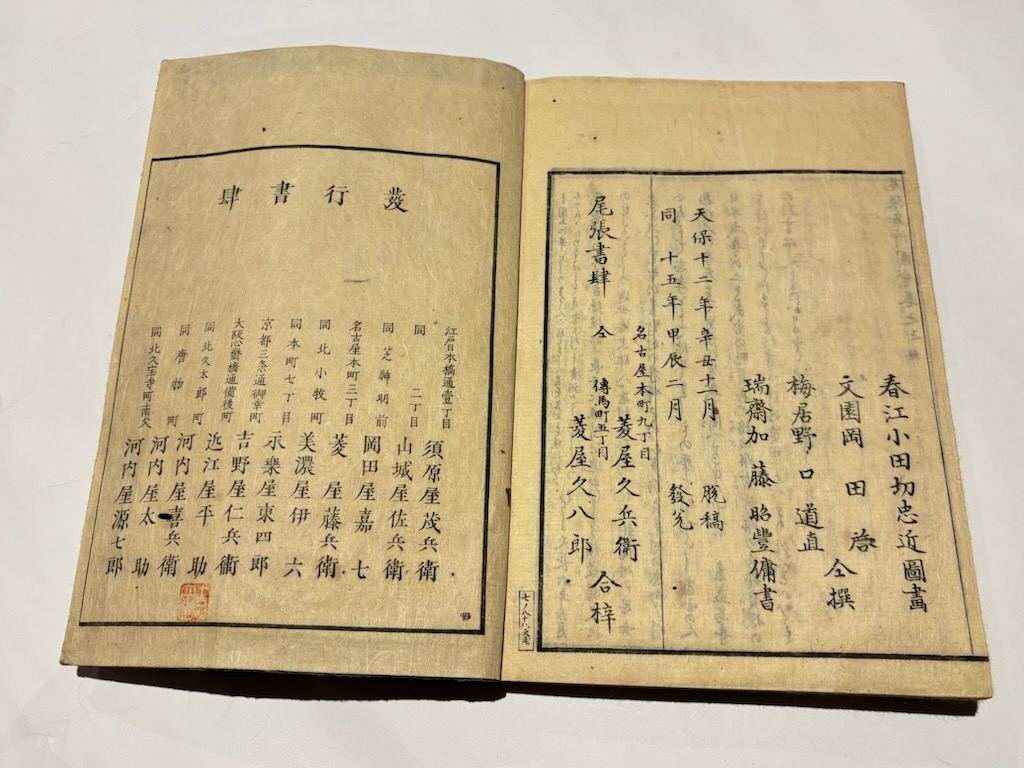 春江小田切忠近圖畵
文園岡田啓
仝撰
梅居野口道直
瑞齋加藤昭豐傭書
天保十二年辛丑十二月脱稿
同十五年甲辰二月發兌
名古屋本町九丁目
菱屋久兵衛
尾張書肆
合梓
仝傳馬町五丁目
菱屋久八郎
發行書肆
江戸日本橋通壹丁目須原屋茂兵衛
同二丁目山城屋佐兵衛
同芝神明前岡田屋嘉七
名古屋本町三丁目菱屋藤兵衛
同北小牧町美濃屋伊六
同本町七丁目永樂屋東四郎
京都三条通御幸町吉野屋仁兵衛
大阪心齋橋通備後町近江屋平助
同北久太郎町河内屋喜兵衛
同唐物町河内屋太助
同北久宝寺町南久河内屋源七郎